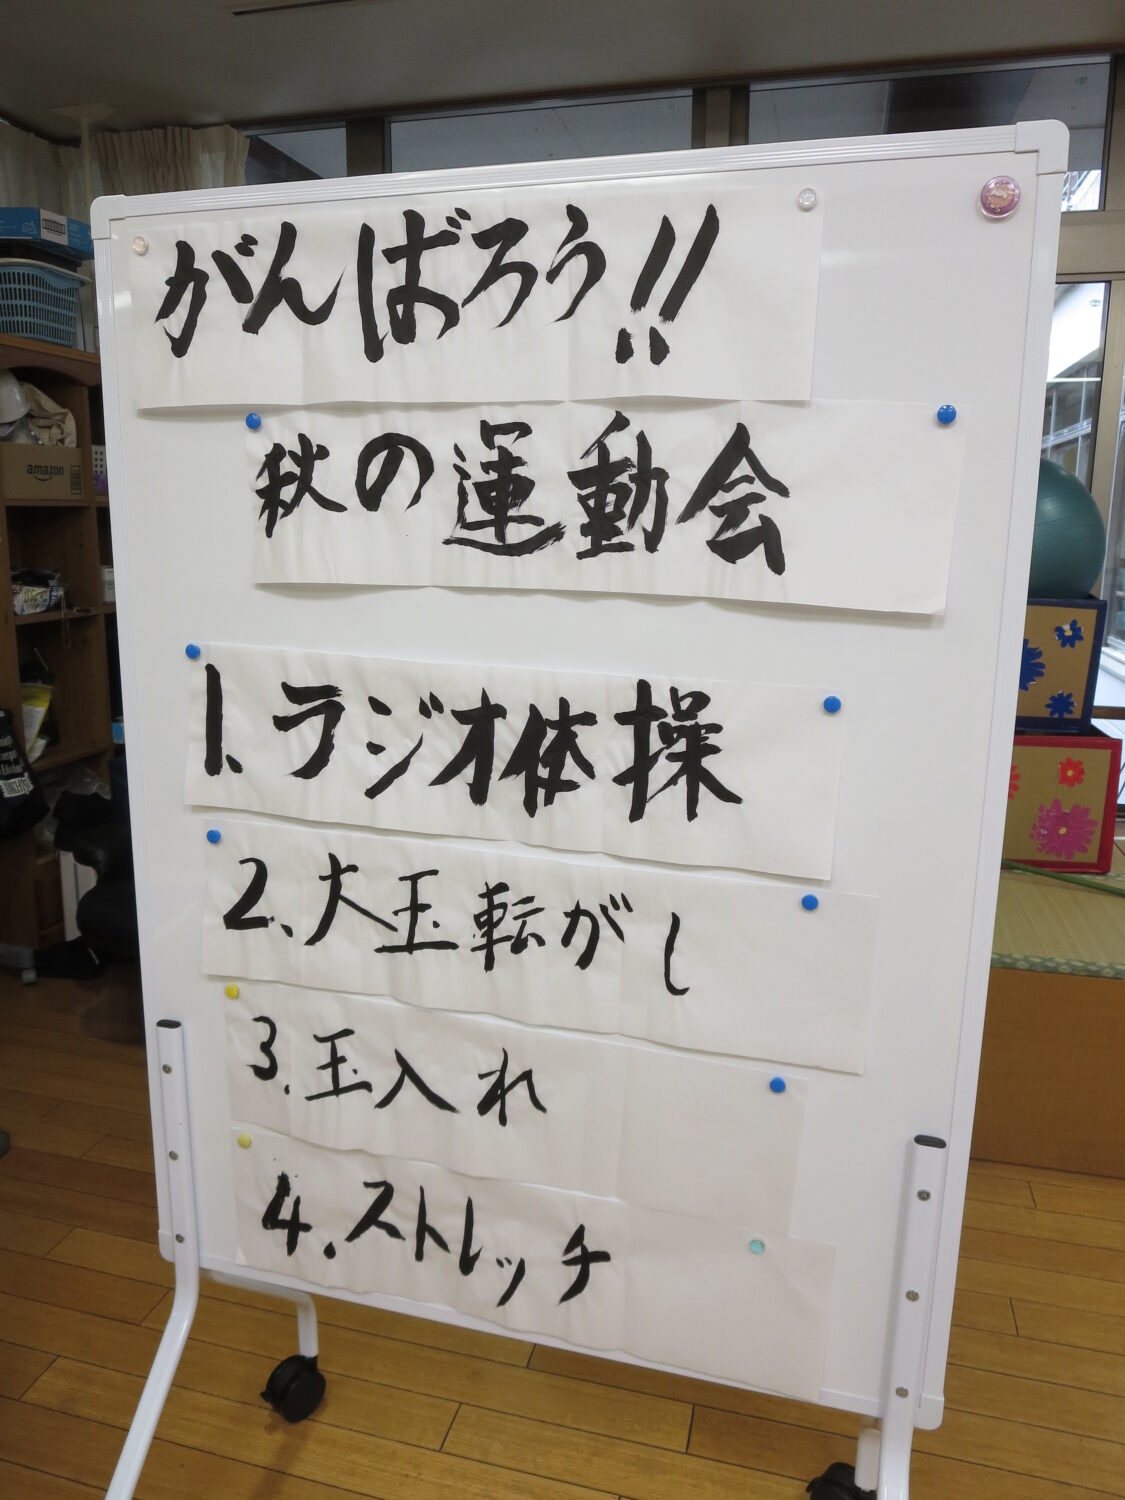 がんばろう!!
秋の運動会
1、ラジオ体操
2、大玉転がし
3、玉入れ
4.ストレッチ
amazon